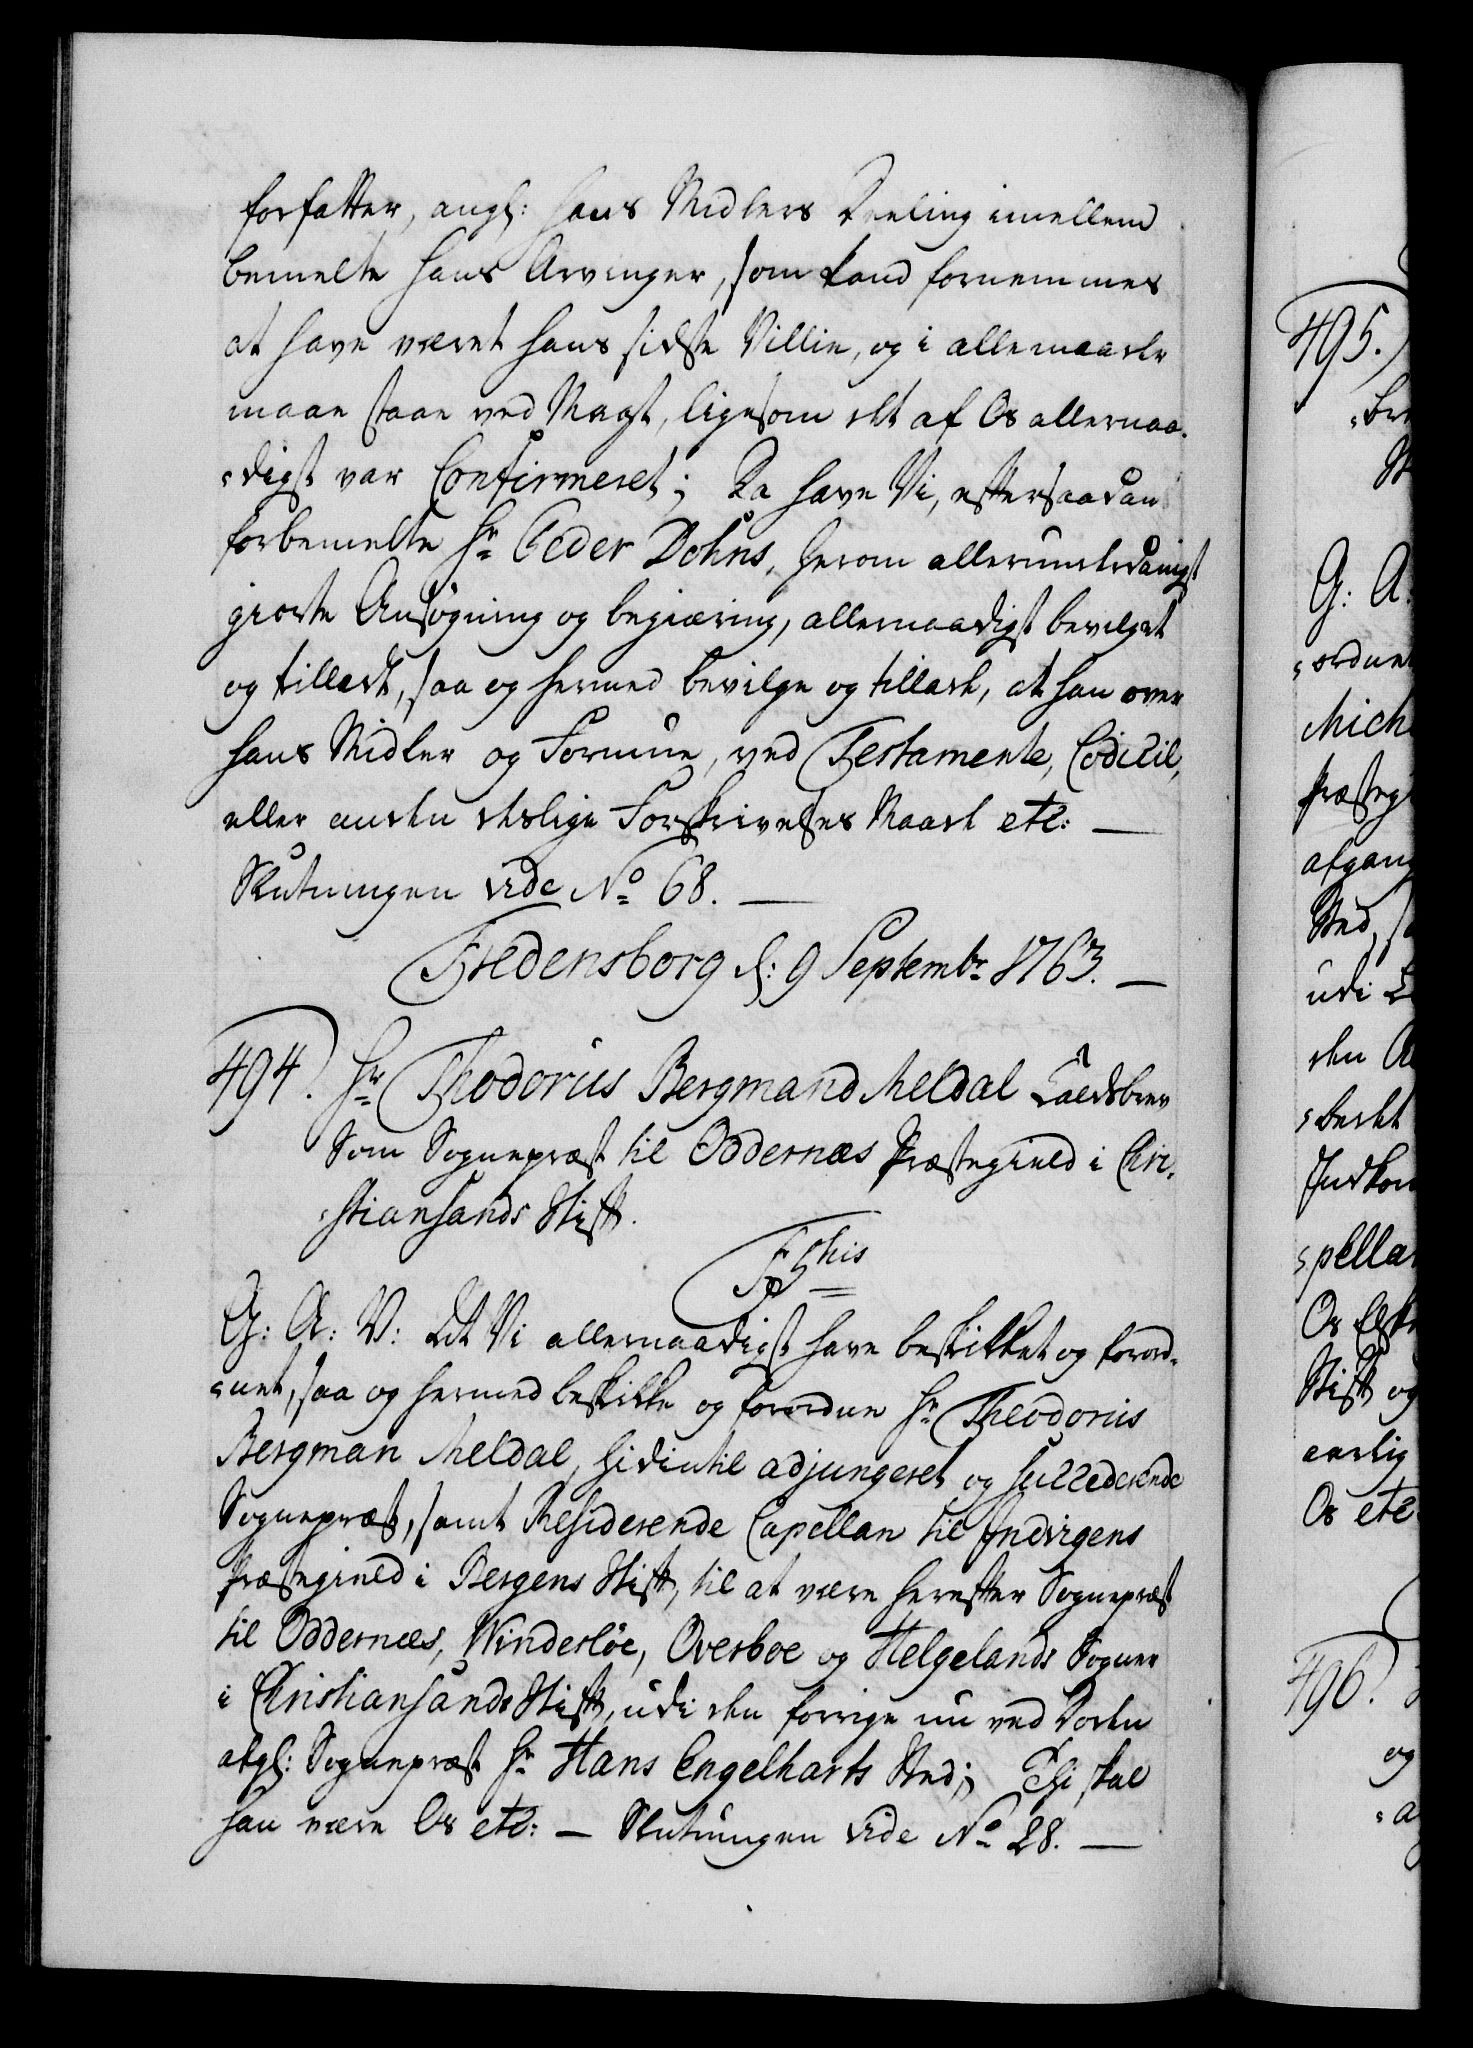 forfatter, angl: hans Midlers Deeling imellem
bemelte hans Arvinger, som kand fornemmes
at have været hans sidste Villie, og i alle maade
maae staae ved Magt, ligesom det af Os allernaa-
digst var Confirmeret; Da have Vi, efter saadan
forbemelte Hr Peder Dohns, herom allerunderdanigst
giorte Ansøgning og begiæring, allernaadigst bevilget
og tilladt, saa og hermed bevilge og tillade, at han over
hans Midler og Formue, ved Testamente, Codicil,
eller anden deslige Forskrivelses Maade etc: —
Slutningen vide No 68. —
Fredensborg d: 9 Septembr 1763. —
494. Hr Thodorius Bergmand Meldal Kaldsbrev
Som Sognepræst til Oddernæs Præstegield i Chri-
stiansands Stift.
F5this
G: A: V: At Vi allernaadigst have beskikket og forord-
net, saa og hermed beskikke og forordne Hr Theodorius
Bergman Meldal, hidintil adjungeret og succederende
Sognepræst, samt Residerende Capellan til Indvigens
Præstegield i Bergens Stift, til at være herefter Sognepræst
til Oddernæs, Winderslöe, Oversboe og Helgelands Sogner
i Christiansands Stift, udi den forrige nu ved Døden
afgl: Sognepræst Hr Hans Engelharts Sted; Thi skal
han være Os etc: — Slutningen vide No 28. —
495.
G: A.
ordne
Mich
præsteg
afgang
Sted, s
udi
den A
Indkom
pella
Os Elske
Stift og
aarlig
Os etc
496.
og